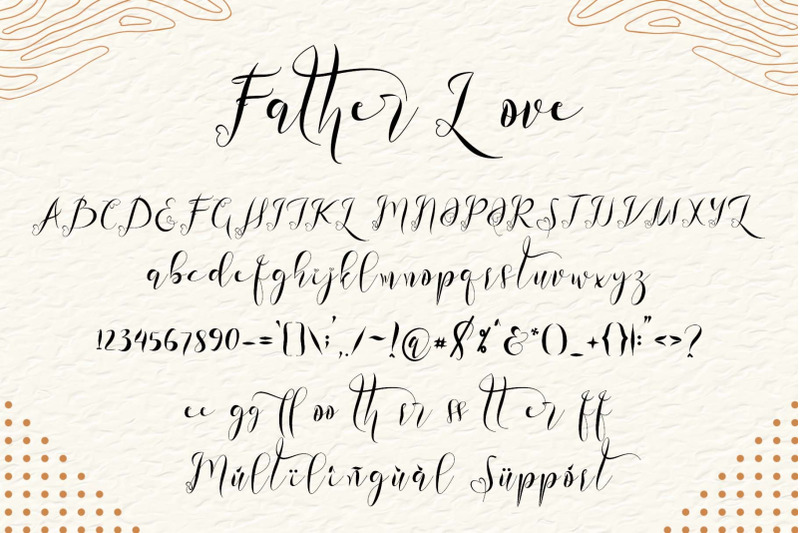 Father Love
ABCDEFGHIJKL MNOPQRSTUVWXYZ
abcdefghijklmnopqrsstuvwxyz
1234567890-=`[]\;',./~!@#$%^&*()_+{}|:"<>?
ee gg ff oo th sr ss tt er ff
Múltïlîñgùàl Süppórt